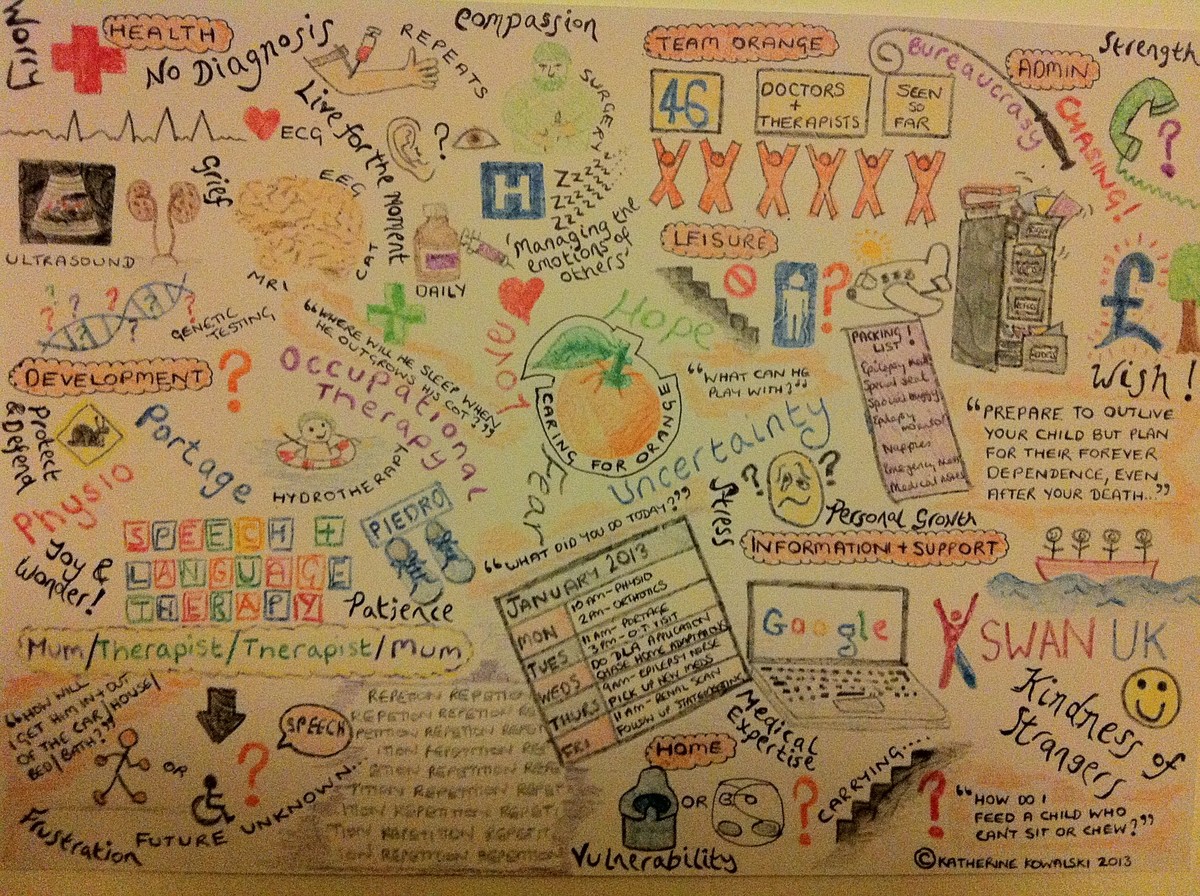 Worry
HEALTH
No Diagnosis
REPEATS
Compassion
SURGERY
Live for the Moment
ECG
?
Grief
EEG
CAT
MRI
ULTRASOUND
H
ZZZZZZ
ZZZZZZ
ZZZZZ
DAILY
'Managing the
emotions of
others'
? ? ? ? ? ?
GENETIC
TESTING
TEAM ORANGE
46
DOCTORS
+
THERAPISTS
SEEN
SO
FAR
Bureaucrasy
ADMIN
Strength
CHASING!
?
LEISURE
?
£
Wish!
PACKING
LIST!
Epilepsy meds
Special seat
Special buggy
Epilepsy
monitor
Nappies
Emergency meds
Medical notes
"WHAT CAN HE
PLAY WITH?"
"PREPARE TO OUTLIVE
YOUR CHILD BUT PLAN
FOR THEIR FOREVER
DEPENDENCE, EVEN
AFTER YOUR DEATH..."
Love
Hope
CARING FOR ORANGE
Fear
Uncertainty
Stress
? ?
Personal Growth
DEVELOPMENT
?
"WHERE WILL HE SLEEP WHEN
HE OUTGROWS HIS COT?"
Occupational
Therapy
Protect
& Defend
Portage
Physio
HYDROTHERAPY
PIEDRO
Joy &
Wonder!
SPEECH +
LANGUAGE
THERAPY
Patience
Mum/Therapist/Therapist/Mum
"WHAT DID YOU DO TODAY?"
JANUARY 2013
MON
10AM - PHYSIO
2PM - ORTHOTICS
TUES
11AM - PORTAGE
3PM - O.T. VISIT
WEDS
DO DLA APPLICATION
CHASE HOME ADAPTATIONS
THURS
9AM - EPILEPSY NURSE
PICK UP NEW MEDS
FRI
11AM - RENAL SCAN
FOLLOW UP STATEMENTING
INFORMATION + SUPPORT
Google
SWAN UK
Kindness of
Strangers
Medical
Expertise
"HOW WILL
I GET HIM IN + OUT
OF THE CAR/HOUSE/
BED/BATH?"
OR
?
SPEECH
Frustration
FUTURE UNKNOWN...
REPETION REPETIO
REPETION REPETION
PETITION REPETITION REPE
ITION REPETITION REP
ETITION REPETITION REPE
TITION REPETITION REPET
ITION REPETITION REPETI
TION REPETITION REPET
TION REPETITION REPETI
ION REPETITION REPETITION
HOME
OR
?
CARRYING....
?
Vulnerability
"HOW DO I
FEED A CHILD WHO
CAN'T SIT OR CHEW?"
© KATHERINE KOWALSKI 2013